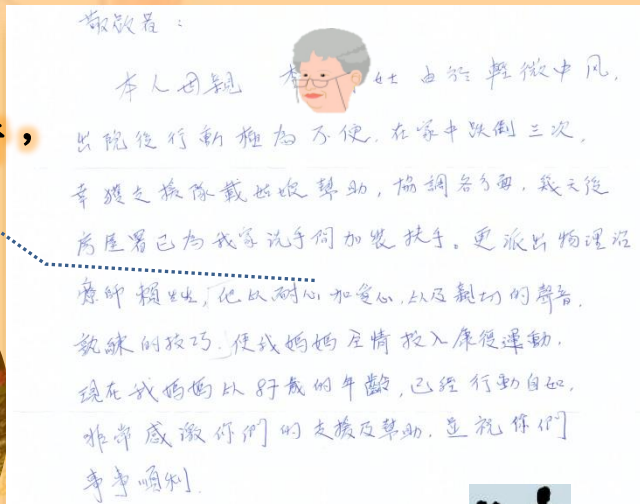 敬啟者：
本人母親 李 女士 由於輕微中风，
出院後行動極為不便，在家中跌倒三次，
幸獲支援隊戴姑娘幫助，協調各方面，幾天後
房屋署已為我家洗手间加裝扶手。更派出物理治
療師賴生，他以耐心加愛心，以及親切的聲音，
熟練的技巧，使我媽媽全情投入康復運動，
現在我媽媽以87歲的年齡，已經行動自如，
非常感激你們的支援及幫助，並祝你們
事事順利.
，